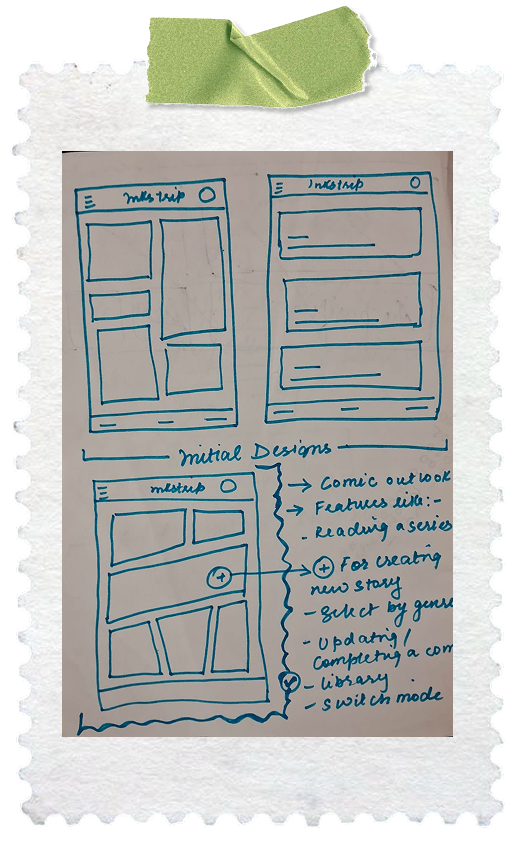 Inkstrip
Inkstrip
Initial Designs
Inkstrip
→ Comic outlook
→ Features like:-
- Reading a series
+ For creating
new story
- Select by genre
- Updating/
completing a com
- library
- switch mode